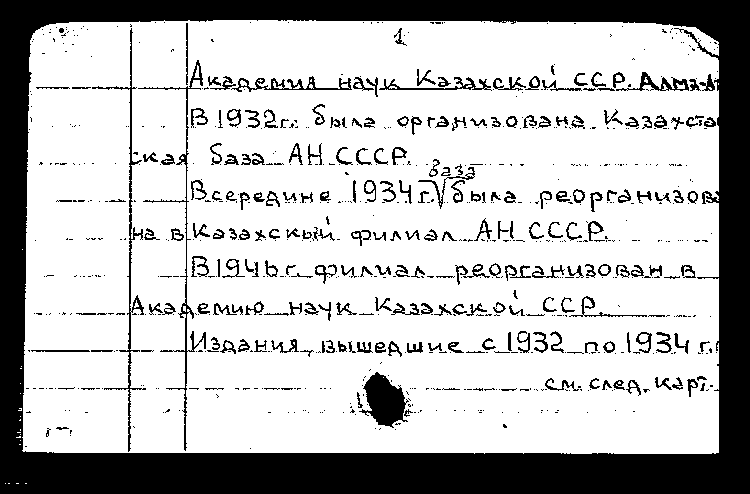 1
Академия наук Казахской ССР. Алма-А
В 1932г. была организована Казахста
ская база АН СССР.
база
В середине 1934г. была реорганизова
на в Казахский филиал АН СССР.
В 1946 г. филиал реорганизован в
Академию наук Казахской ССР.
Издания, вышедшие с 1932 по 1934 г.
см. след. карт.